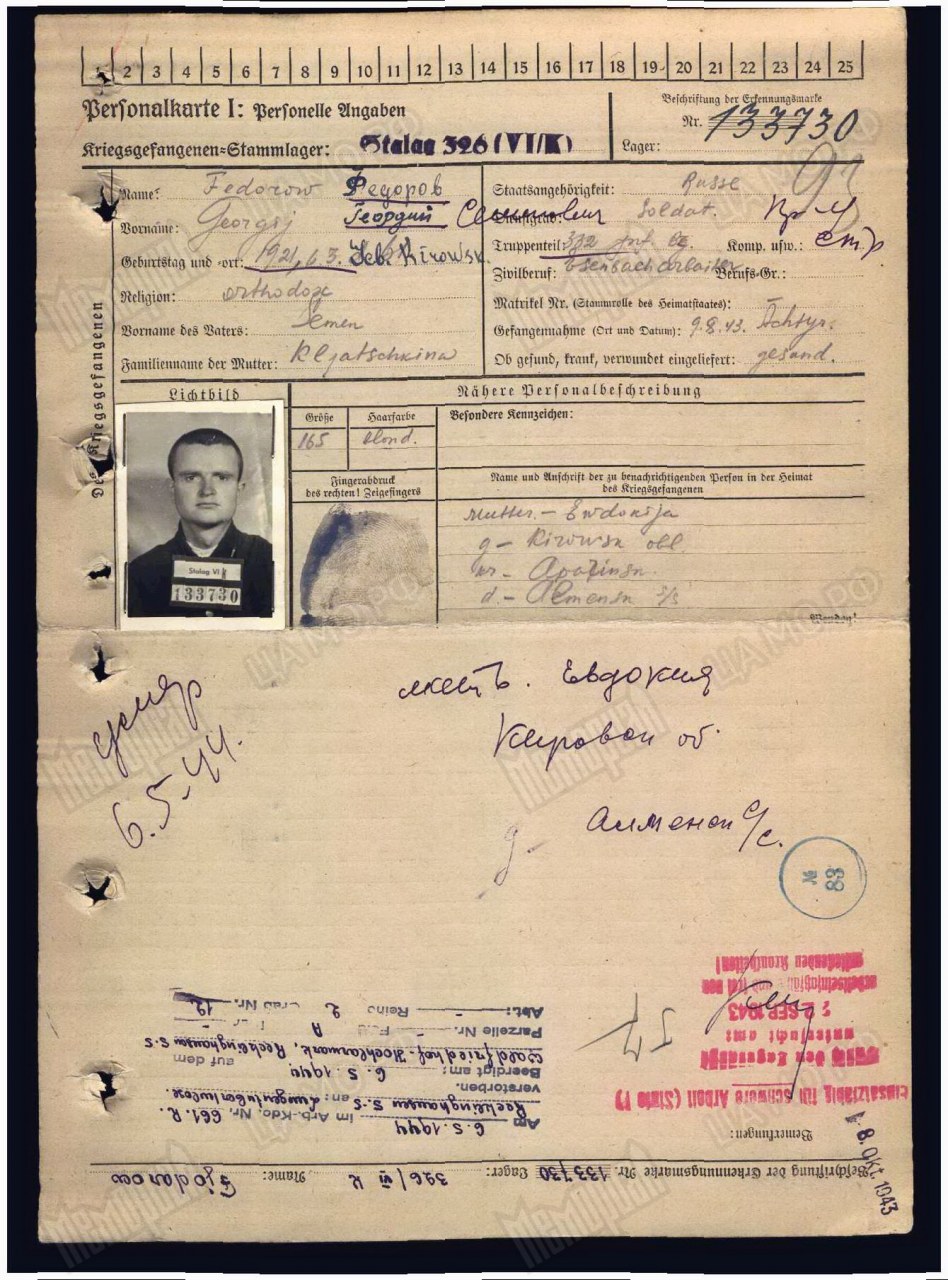 1 2 3 4 5 6 7 8 9 10 11 12 13 14 15 16 17 18 19 20 21 22 23 24 25
Personalkarte I: Personelle Angaben
Kriegsgefangenen-Stammlager: Stalag 326 (VI/K)
Beschriftung der Erkennungsmarke
Nr. 133730
Lager:
93
Des Kriegsgefangenen
Name: Fedorow Федоров
Vorname: Georgij Георгий Семенович
Geburtstag und -ort: 1921, 6.3. Geb. Kirowsk.
Religion: orthodox
Vorname des Vaters: Semen
Familienname der Mutter: Kljatschkina
Staatsangehörigkeit: Russe
Dienstgrad: Soldat.
Truppenteil: 332 Inf. Komp. usw.:
стр
Zivilberuf: Berufs-Gr.:
Matrikel Nr. (Stammrolle des Heimatstaates):
Gefangennahme (Ort und Datum): 9.8.43. Achtyr.
Ob gesund, krank, verwundet eingeliefert: gesund.
Lichtbild
Stalag VI K
133730
Nähere Personalbeschreibung
Größe
165
Haarfarbe
blond.
Besondere Kennzeichen:
Fingerabdruck
des rechten! Zeigefingers
Name und Anschrift der zu benachrichtigenden Person in der Heimat
des Kriegsgefangenen
Mutter. - Ewdokija
g - Kirowsk obl.
d. - Almensk s/s
Wenden!
умер
6.5-44.
мать. Евдокия
Кировск об.
д- Алменск с/с.
№
83
Beschriftung der Erkennungsmarke Nr. 133730 Lager: 326/VI K Name: Fjodorow
Bemerkungen:
8. Okt. 1943
Einsatzfähig für schwere Arbeit (Stufe I)
untersucht am:
2. SEP. 1943
ansteckenden Krankheiten!
57
Am 6.5.1944 im Arb.-Kdo. Nr. 661 R.
Recklinghausen S-S an: Lungentuberkulose
verstorben.
Beerdigt am: 6.5.1944 auf dem
Waldfriedhof-Hochlarmark, Recklinghausen S-S
Parzelle Nr. Feld A
Abt.: Reihe 2 Grab Nr. 12.
Мемориал
ЦАМО РФ